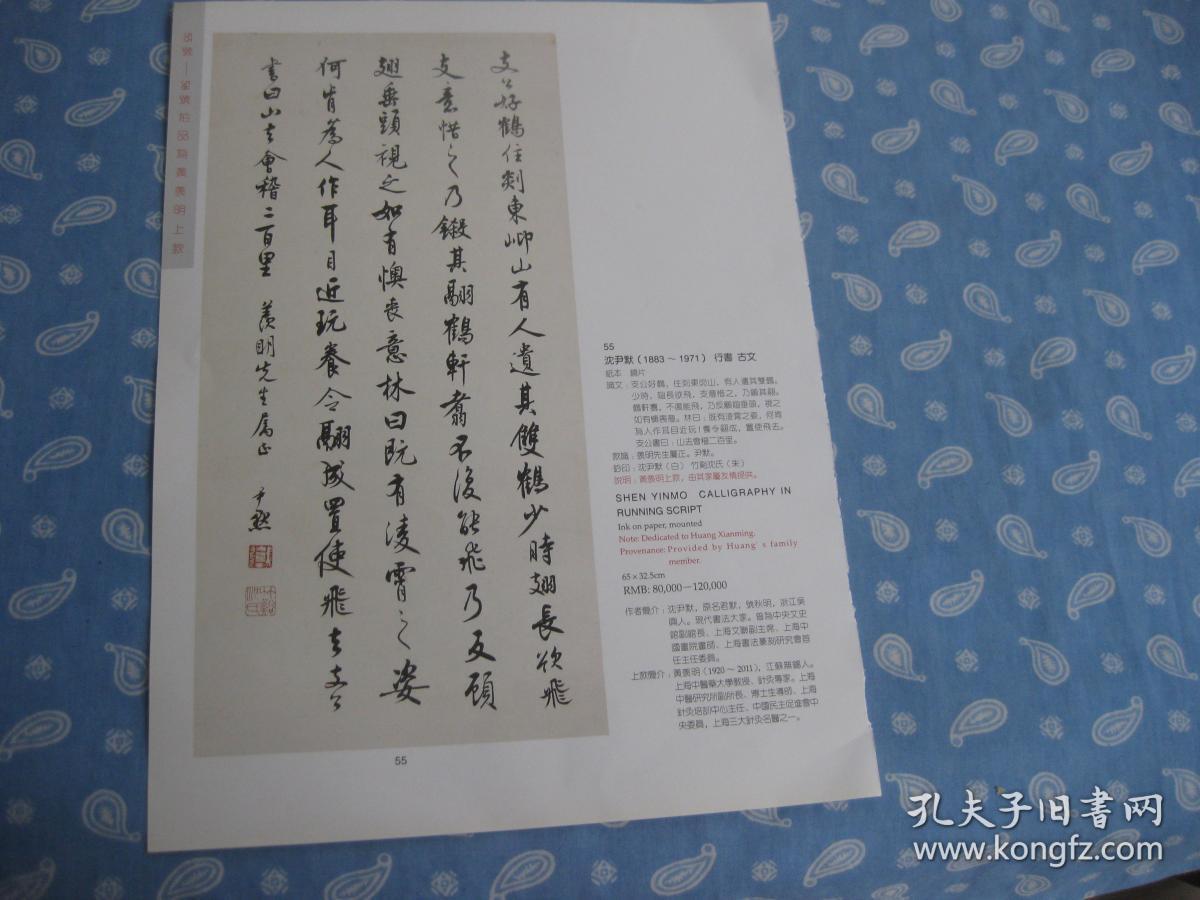 支公好鶴住剡東岬山有人遺其雙鶴少時翅長欲飛
支意惜之乃鎩其翮鶴軒翥不復能飛乃反顧
翅垂頭視之如有懊喪意林曰既有凌霄之姿
何肯為人作耳目近玩養令翮成置使飛去支公
書曰山去會稽二百里 羨明先生屬正
尹默
55
55
沈尹默(1883～1971) 行書 古文
紙本 鏡片
識文:支公好鶴,住剡東岇山,有人遺其雙鶴。
少時,翅長欲飛,支意惜之,乃鎩其翮。
鶴軒翥,不復能飛,乃反顧翅垂頭,視之
如有懊喪意。林曰:既有淩霄之姿,何肯
為人作耳目近玩!養令翮成,置使飛去。
支公書曰:山去會稽二百里。
款識:羨明先生屬正。尹默。
鈐印:沈尹默(白) 竹谿沈氏(朱)
說明:黃羨明上款,由其家屬友情提供。
SHEN YINMO CALLIGRAPHY IN
RUNNING SCRIPT
Ink on paper, mounted
Note: Dedicated to Huang Xianming.
Provenance: Provided by Huang's family
member.
65×32.5cm
RMB: 80,000—120,000
作者簡介:沈尹默,原名君默,號秋明,浙江吳
興人。現代書法大家。曾為中央文史
館副館長、上海文聯副主席、上海中
國畫院畫師、上海書法篆刻研究會首
任主任委員。
上款簡介:黃羨明(1920～2011),江蘇無錫人。
上海中醫藥大學教授、針灸專家。上海
中醫研究所副所長、博士生導師、上海
針灸培訓中心主任、中國民主促進會中
央委員,上海三大針灸名醫之一。
孔夫子旧书网
www.kongfz.com